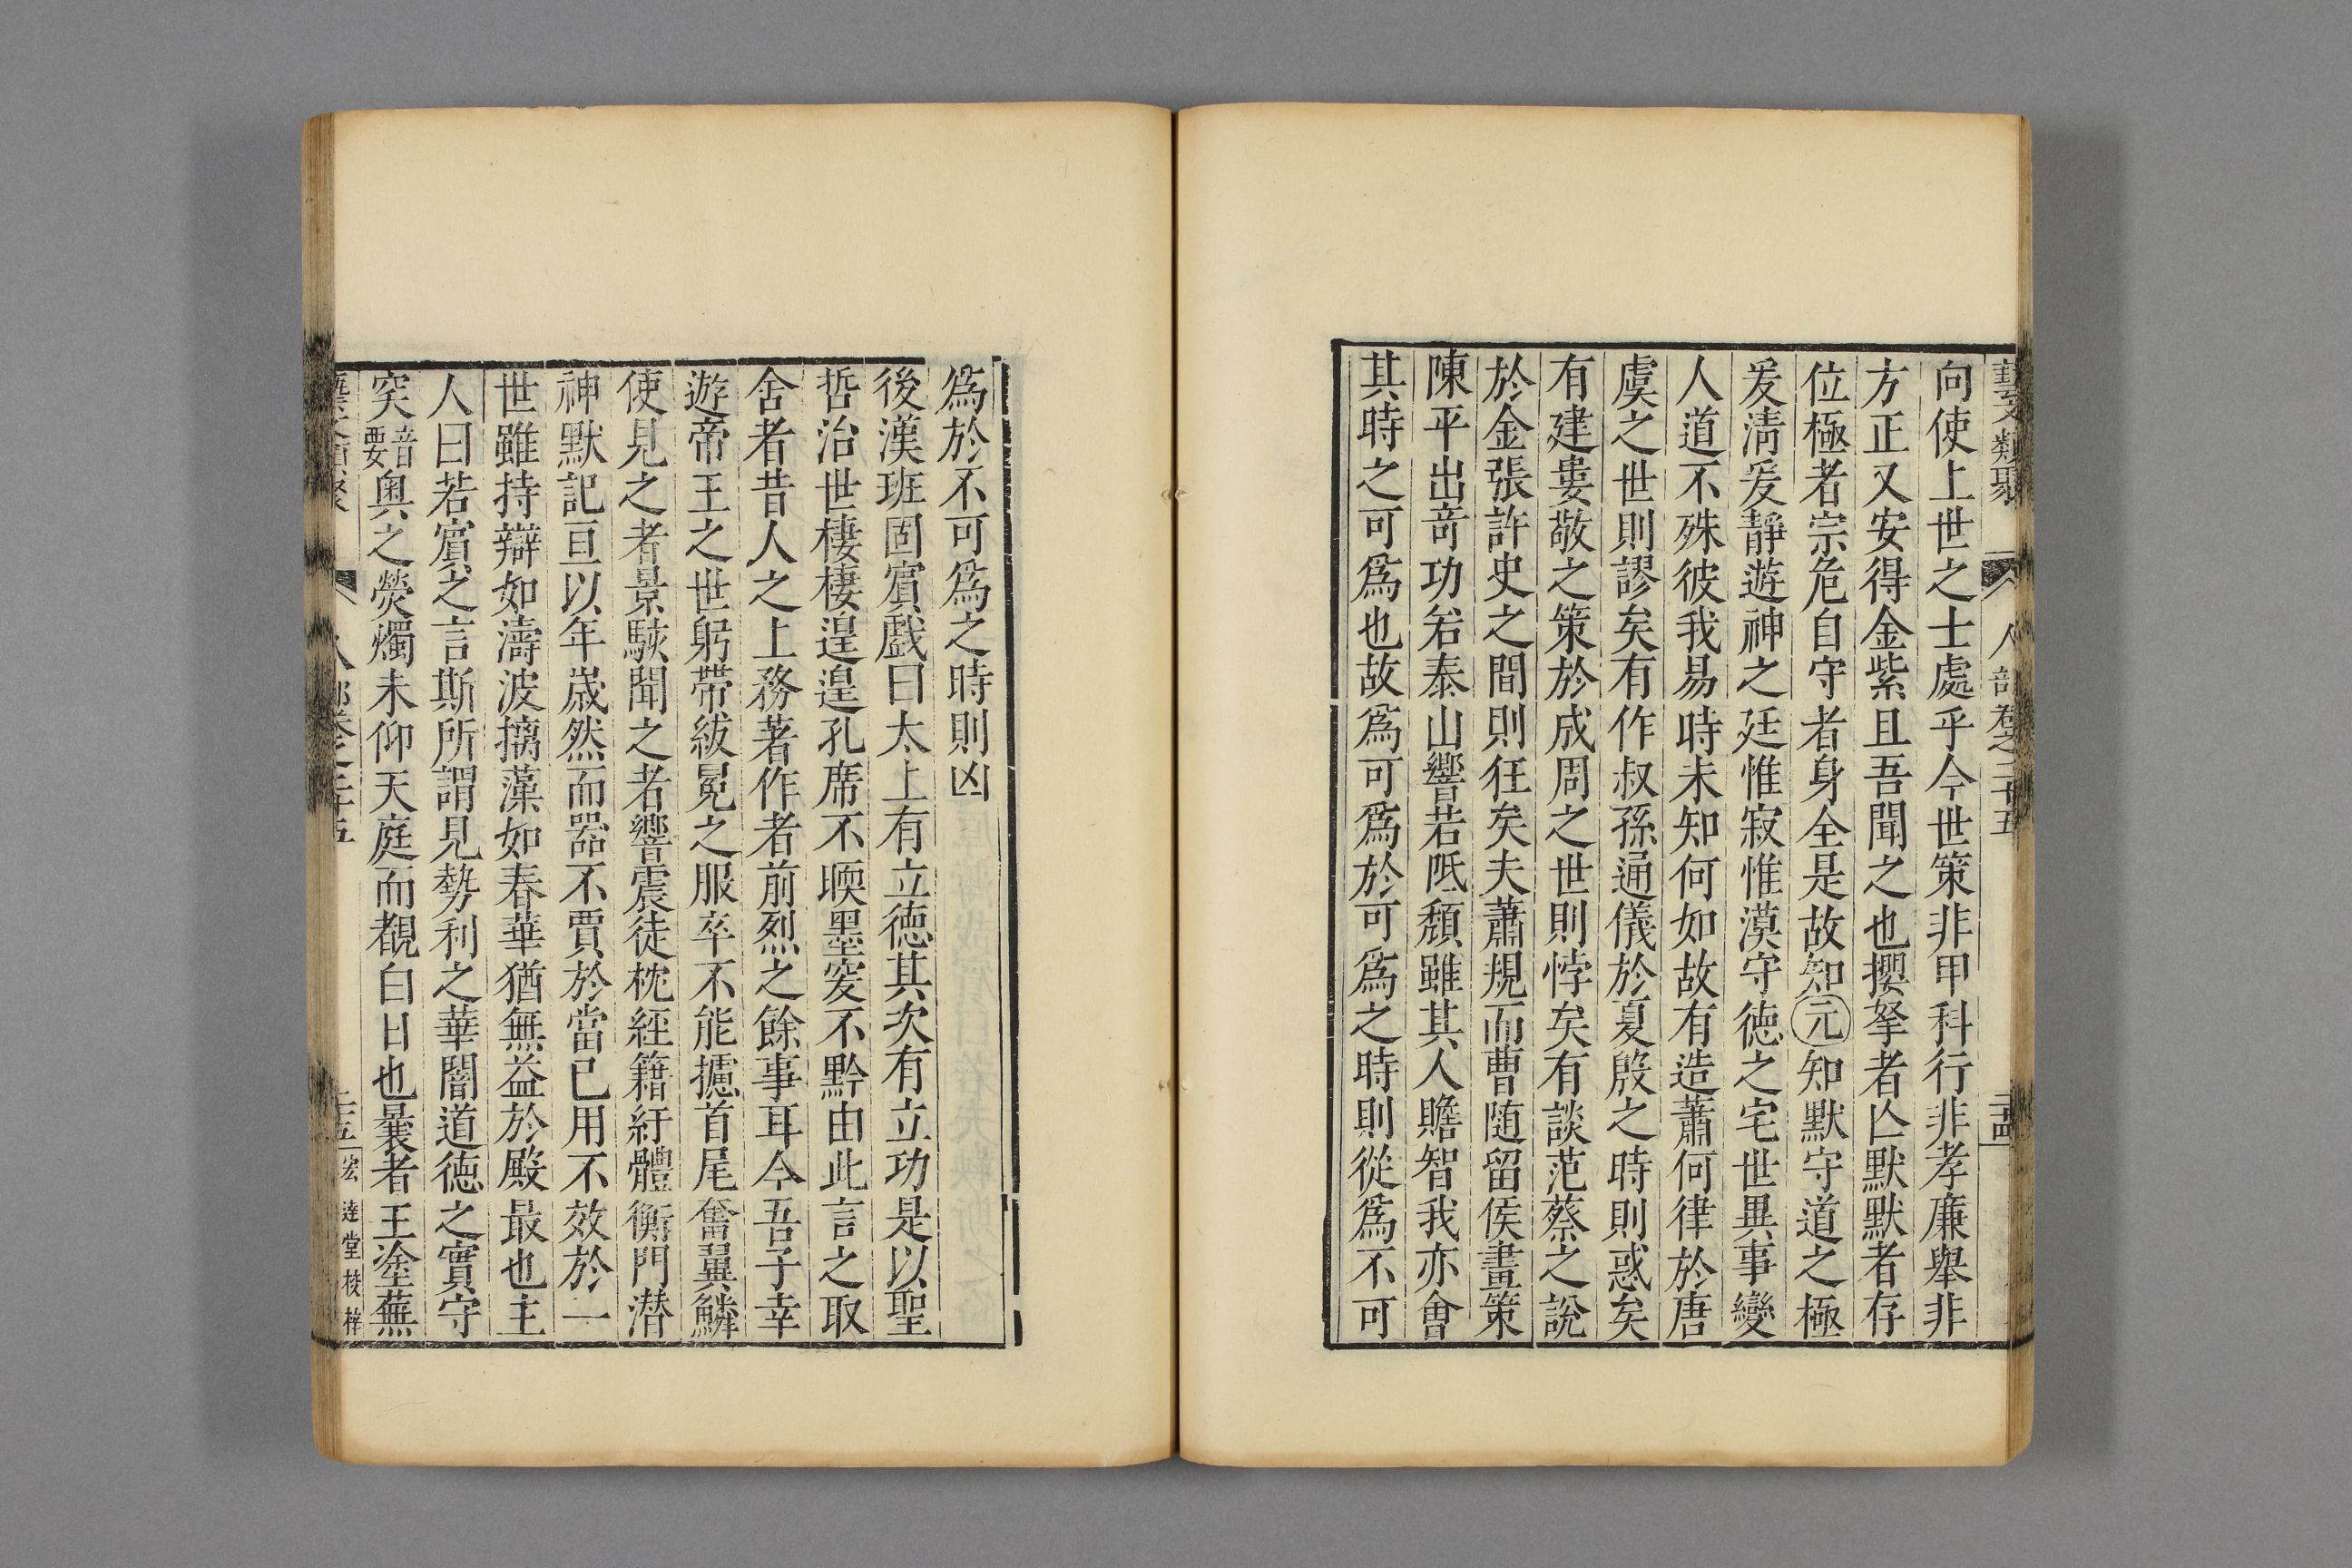 藝文類聚 人部卷之二十五 二十四
向使上世之士處乎今世策非甲科行非孝廉舉非
方正又安得金紫且吾聞之也攫拏者亾默默者存
位極者宗危自守者身全是故知元知默守道之極
爰淸爰靜遊神之廷惟寂惟漠守德之宅世異事變
人道不殊彼我易時未知何如故有造蕭何律於唐
虞之世則謬矣有作叔孫通儀於夏殷之時則惑矣
有建婁敬之策於成周之世則悖矣有談范蔡之說
於金張許史之間則狂矣夫蕭規而曹随留侯畫策
陳平出竒功若泰山響若阺頽雖其人贍智我亦會
其時之可為也故為可為於可為之時則從為不可
為於不可為之時則凶
後漢班固賔戲曰太上有立德其次有立功是以聖
哲治世棲棲遑遑孔席不暝墨突不黔由此言之取
舍者昔人之上務著作者前烈之餘事耳今吾子幸
遊帝王之世躬帶紱冕之服卒不能攄首尾奮翼鱗
使見之者景駭聞之者響震徒枕經籍紆體衡門潜
神默記亘以年歳然而器不賈於當已用不效於一
世雖持辯如濤波摛藻如春華猶無益於殿最也主
人曰若賔之言斯所謂見勢利之華闇道德之實守
穾音要奥之熒燭未仰天庭而覩白日也曩者王塗蕪
人部卷之二十五 二十五 宏達堂校梓